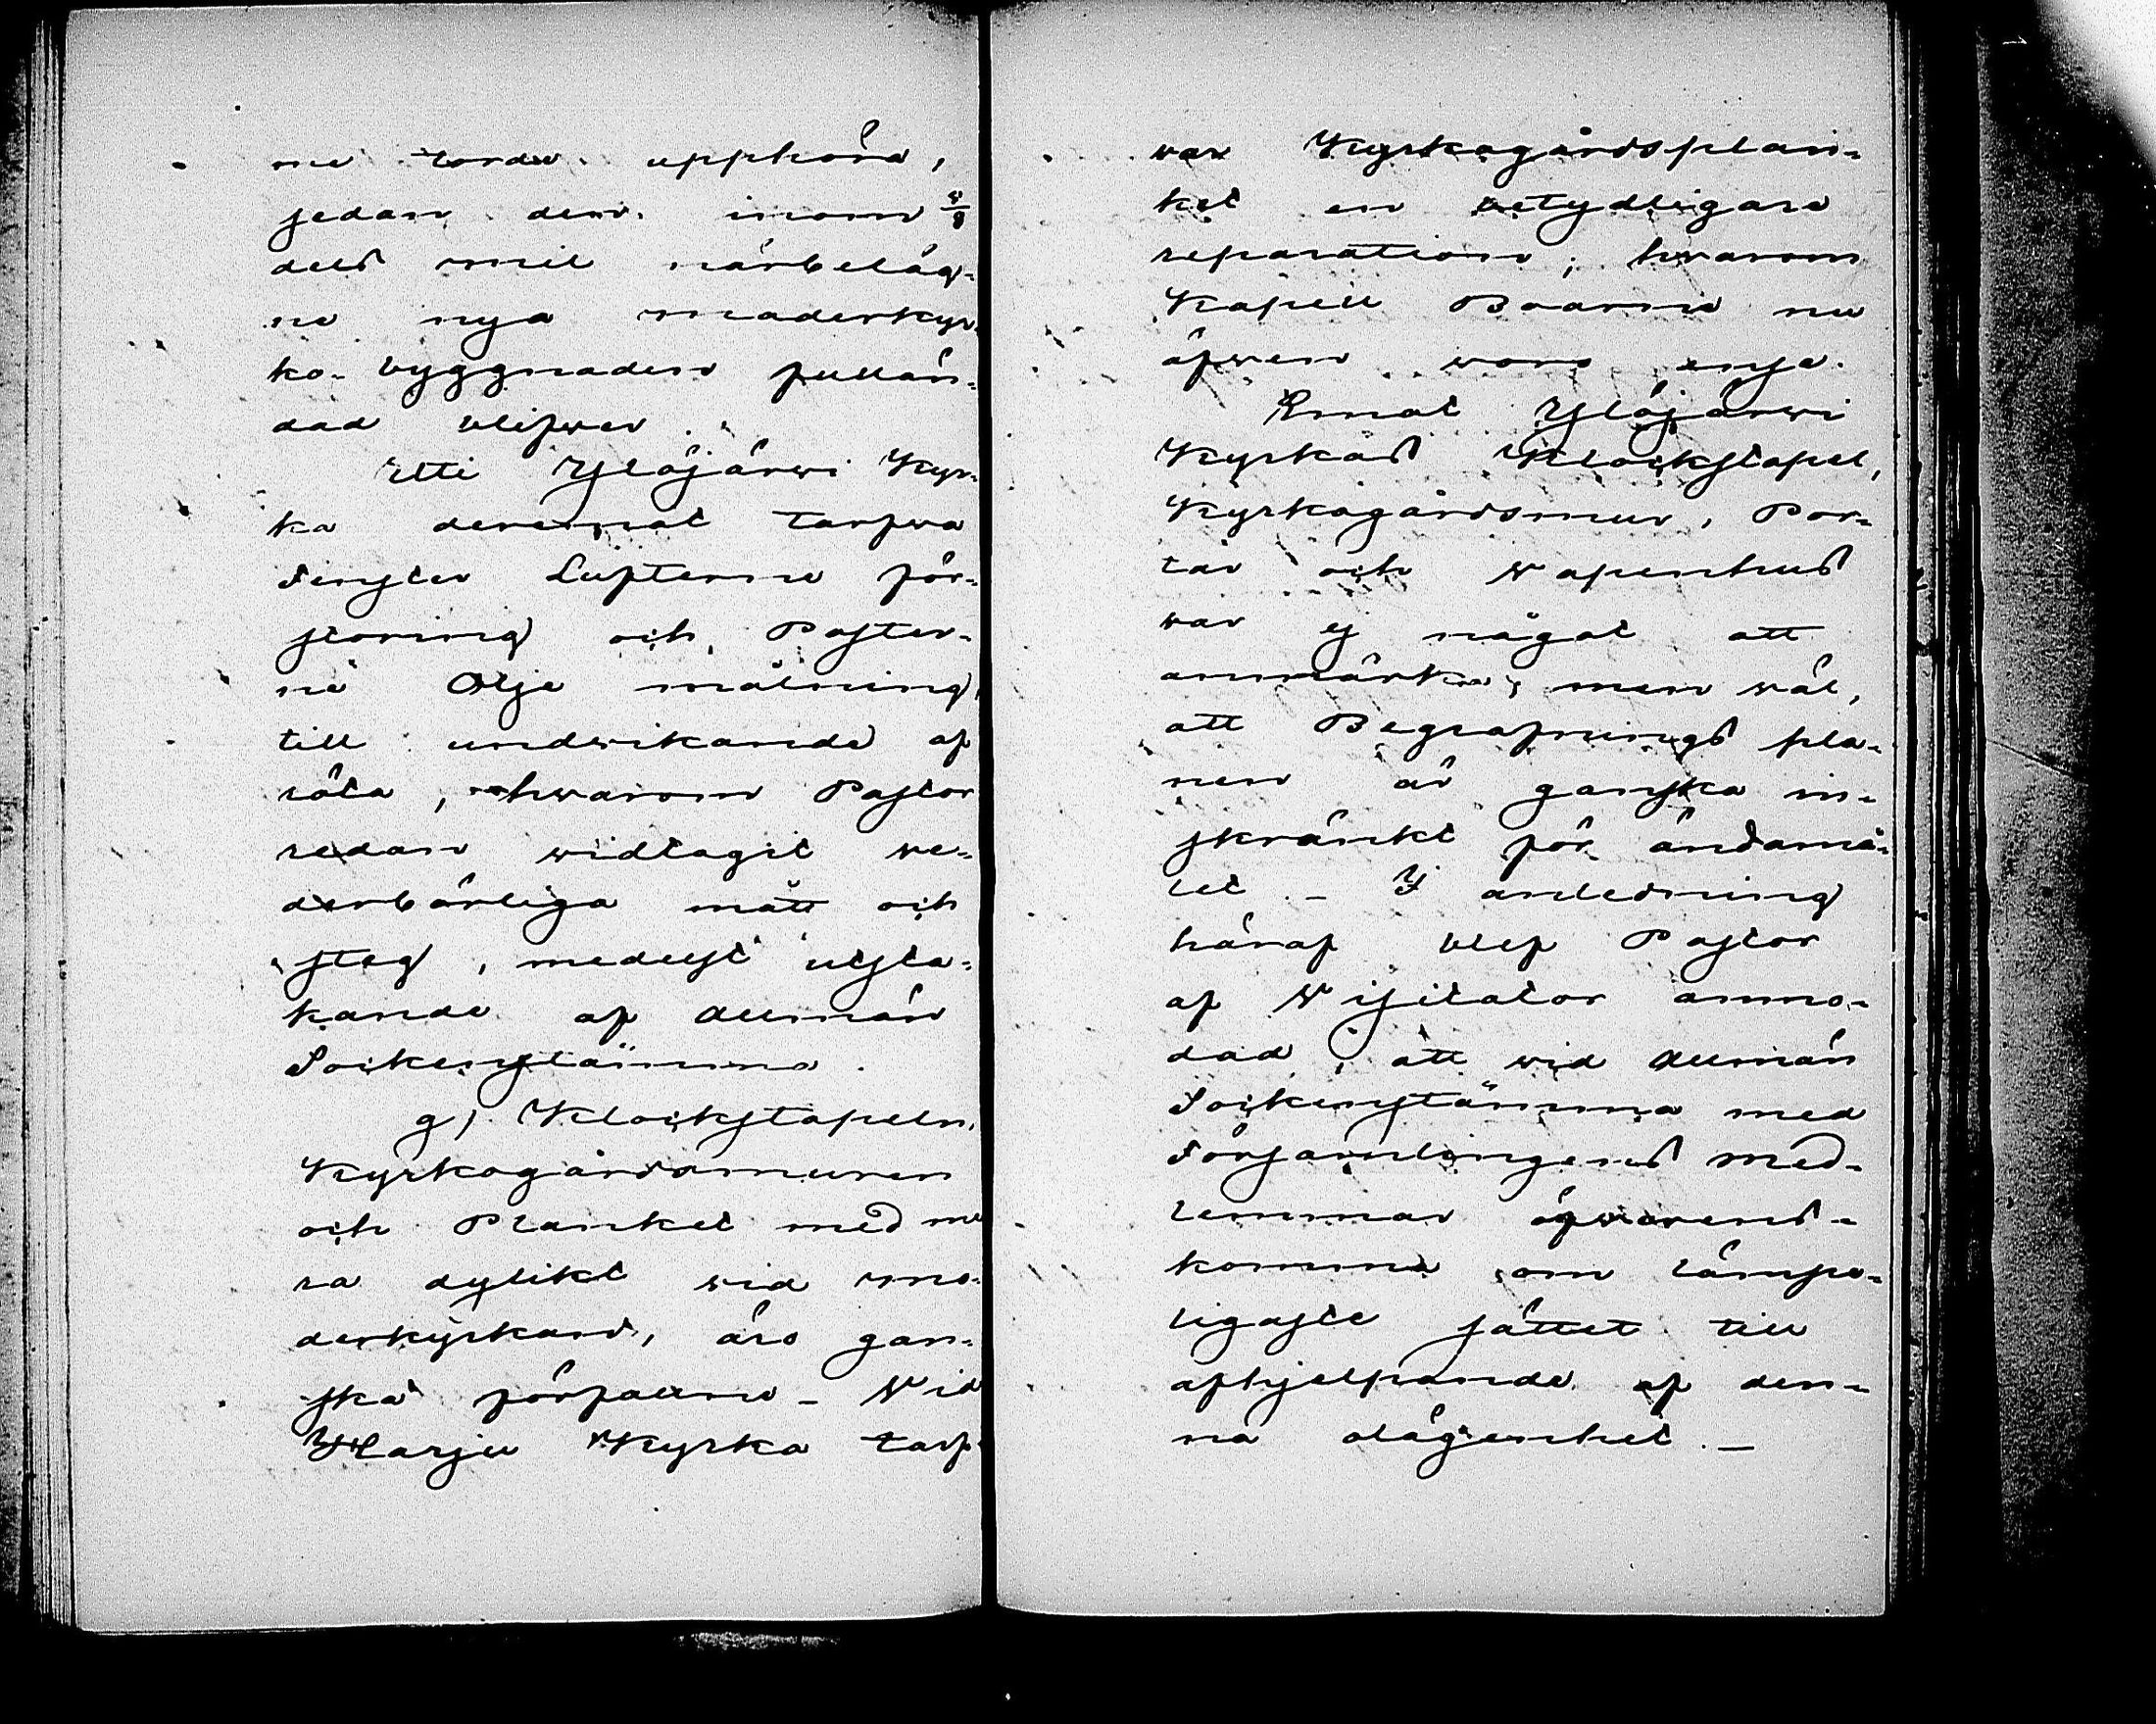 ne torde upphöra,
sedan den inom 5/8
dels mil närbeläg-
ne nya moderkyr-
ko-byggnaden fullän-
dad blifver.
Uti Ylöjärwi Kyr-
ka deremot tarfva
Fenster Lufterne för-
storing och Poster-
ne Olje målning,
till undwikande af
röta, hwarom Pastor
redan widtagit we-
derbörliga mått och
steg, medelst utsta-
kande af Allmän
Sockenstämma.
g) Klockstapeln,
Kyrkogårdsmuren
och Planket med me
ra dylikt wid mo-
derkyrkan, äro gan-
ska förfallne – Wid
Harju Kyrka tarf-
var Kyrkogårdsplan-
ket en betydligare
reparation; hvarom
Kapell Boarne nu
äfwen woro ense.
Emot Ylöjärwi
Kyrkas Klockstapel,
Kyrkogårdsmur, Por-
tar och Wapenhus
war ej något att
anmärka; men wäl,
att Begrafnings pla-
nen är ganska in-
skränkt för ändamå-
let. – I anledning
häraf blef Pastor
af Wisitator anmo-
dad, att wid Allmän
Sockenstämma med
Församlingens med-
lemmar öfwerens-
komma om lämpe-
ligaste sättet till
afhjelpande af den-
na olägenhet. –